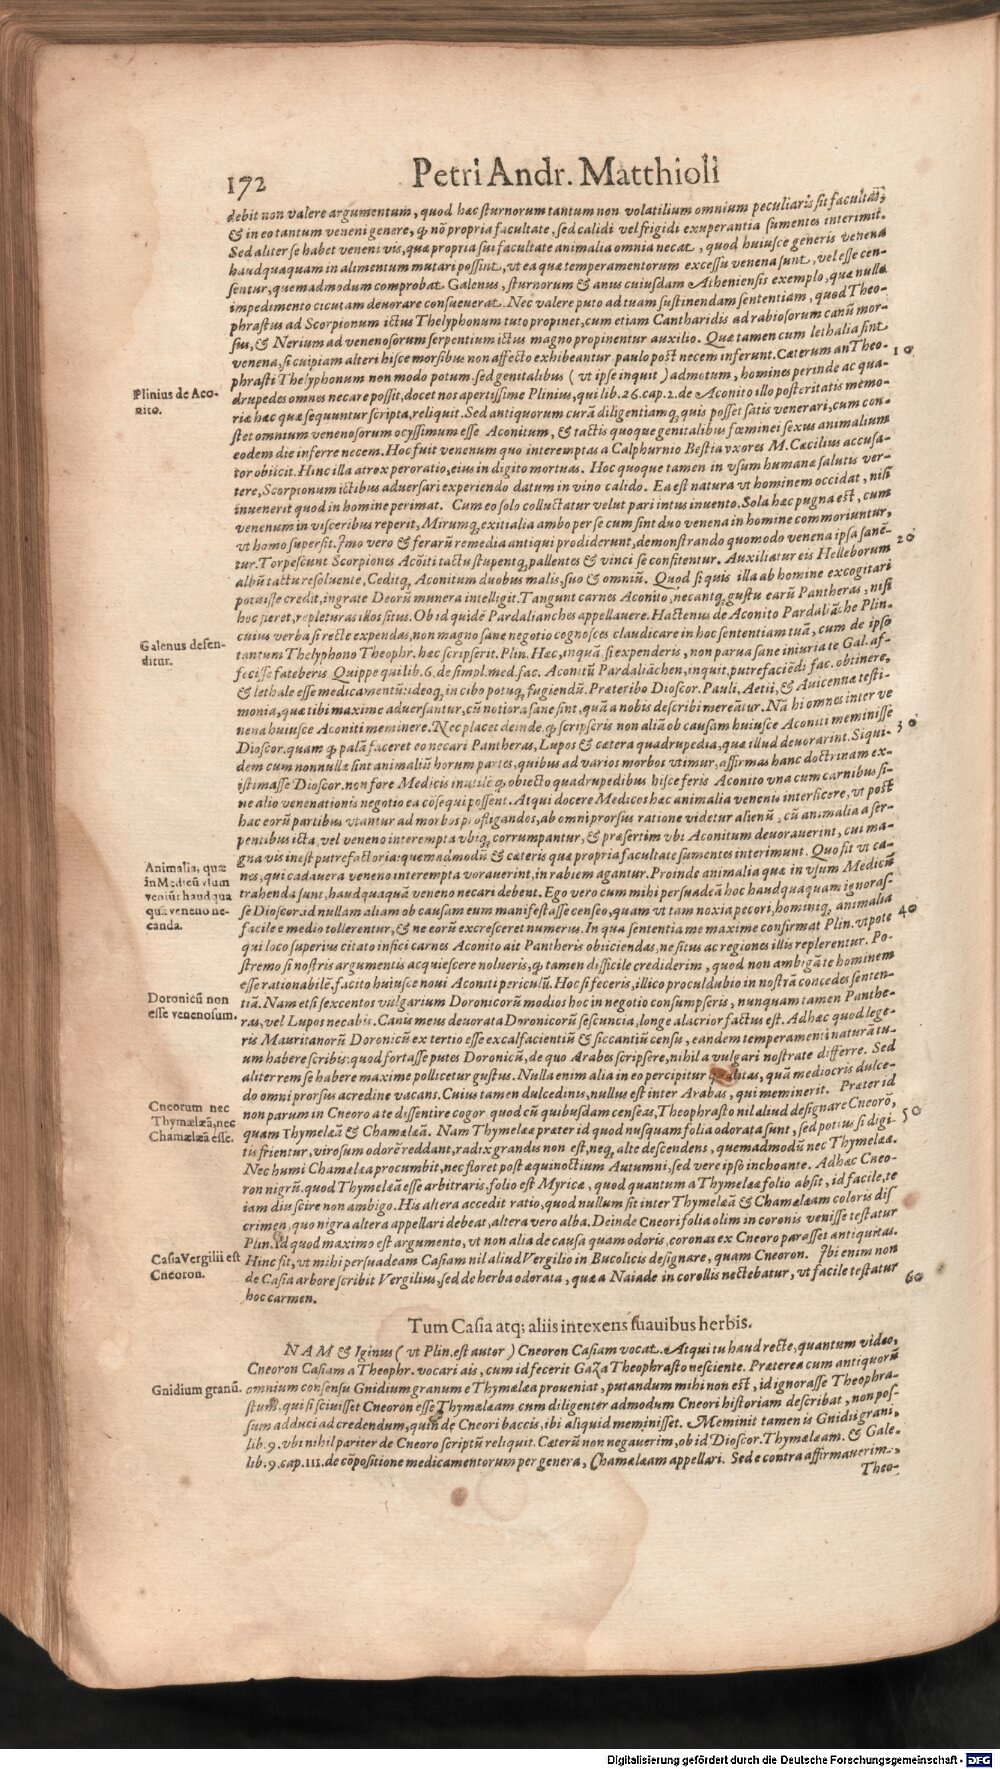 172
Petri Andr. Matthioli
debit non valere argumentum, quod hac sturnorum tantum non volatilium omnium peculiaris sit facultas,
& in eo tantum veneni genere, ꝙ nõ propria facultate, sed calidi vel frigidi exuperantia sumentes interimit.
Sed aliter se habet veneni vis, quæ propria sui facultate animalia omnia necat, quod huiusce generis venena
haudquaquam in alimentum mutari possint, vt ea quæ temperamentorum excessu venena sunt, vel esse cen-
sentur, quemadmodum comprobat Galenus, sturnorum & anus cuiusdam Atheniensis exemplo, quæ nullo
impedimento cicutam deuorare consueuerat. Nec valere puto ad tuam sustinendam sententiam, quod Theo-
phrastus ad Scorpionum ictus Thelyphonum tuto propinet, cum etiam Cantharidis ad rabiosorum canũ mor-
sus, & Nerium ad venenosorum serpentium ictus magno propinentur auxilio. Quæ tamen cum lethalia sint
venena, si cuipiam alteri hisce morsibus non affecto exhibeantur paulo post necem inferunt. Cæterum an Theo-
10
phrasti Thelyphonum non modo potum, sed genitalibus ( vt ipse inquit ) admotum, homines perinde ac qua-
Plinius de Aco-
nito.
drupedes omnes necare possit, docet nos apertissime Plinius, qui lib. 26. cap. 2. de Aconito illo posteritatis memo-
riæ hæc quæ sequuntur scripta, reliquit. Sed antiquorum curã diligentiamq; quis posset satis venerari, cum con-
stet omnium venenosorum ocyssimum esse Aconitum, & tactis quoque genitalibus fœminei sexus animalium
eodem die inferre necem. Hoc fuit venenum quo interemptas a Calphurnio Bestia vxores M. Cæcilius accusa-
tor obiicit. Hinc illa atrox peroratio, eius in digito mortuas. Hoc quoque tamen in vsum humanæ salutis ver-
tere, Scorpionum ictibus aduersari experiendo datum in vino calido. Ea est natura vt hominem occidat, nisi
inuenerit quod in homine perimat. Cum eo solo colluctatur velut pari intus inuento. Sola hæc pugna est, cum
venenum in visceribus reperit, Mirumq; exitialia ambo per se cum sint duo venena in homine commoriuntur,
vt homo supersit. Imo vero & ferarũ remedia antiqui prodiderunt, demonstrando quomodo venena ipsa sanē-
20
tur. Torpescunt Scorpiones Acõiti tactu stupentq; pallentes & vinci se confitentur. Auxiliatur eis Helleborum
albũ tactu resoluente, Ceditq; Aconitum duobus malis, suo & omniũ. Quod si quis illa ab homine excogitari
potuisse credit, ingrate Deorũ munera intelligit. Tangunt carnes Aconito, necantq; gustu earũ Pantheras, nisi
hoc fieret, repleturas illos situs. Ob id quidē Pardalianches appellauere. Hactenus de Aconito Pardaliãche Plin.
cuius verba si recte expendas, non magno sane negotio cognosces claudicare in hoc sententiam tuã, cum de ipso
Galenus defen-
ditur.
tantum Thelyphono Theophr. hæc scripserit. Plin. Hæc, inquã, si expenderis, non parua sane iniuria te Gal. af-
fecisse fateberis Quippe qui lib. 6. de simpl. med. fac. Aconitũ Pardaliãchen, inquit, putrefaciēdi fac. obtinere,
& lethale esse medicamentũ: ideoq; in cibo potuq; fugiendũ. Præteribo Dioscor. Pauli, Aetii, & Auicennæ testi-
monia, quæ tibi maxime aduersantur, cũ notiora sane sint, quã a nobis describi mereãtur. Nã hi omnes inter ve
nena huiusce Aconiti meminere. Nec placet deinde, ꝙ scripseris non aliã ob causam huiusce Aconiti meminisse
30
Dioscor. quam ꝙ palã faceret eo necari Pantheras, Lupos & cætera quadrupedia, quæ illud deuorarint. Siqui-
dem cum nonnullæ sint animaliũ horum partes, quibus ad varios morbos vtimur, affirmas hanc doctrinam ex-
istimasse Dioscor. non fore Medicis inutilē ꝙ obiecto quadrupedibus hisce feris Aconito vna cum carnibus si-
ne alio venenationis negotio ea cõsequi possent. Atqui docere Medicos hæc animalia venenis interficere, vt post
hac eorũ partibus vtantur ad morbos profligandos, ab omni prorsus ratione videtur alienũ, cũ animalia a ser-
pentibus icta, vel veneno interempta vbiq; corrumpantur, & præsertim vbi Aconitum deuorauerint, cui ma-
gna vis inest putrefactoria: quemadmodũ & cæteris quæ propria facultate sumentes interimunt. Quo fit vt ca-
Animalia, quæ
in Medicũ vsum
veniũt haud qua
quã veneno ne-
canda.
nes, qui cadauera veneno interempta vorauerint, in rabiem agantur. Proinde animalia quæ in vsum Medicũ
trahenda sunt, haudquaquã veneno necari debent. Ego vero cum mihi persuadeã hoc haudquaquam ignoras-
se Dioscor. id nullam aliam ob causam eum manifestasse censeo, quam vt tam noxia pecori, hominiq; animalia
40
facile e medio tollerentur, & ne eorũ excresceret numerus. In qua sententia me maxime confirmat Plin. vtpote
qui loco superius citato infici carnes Aconito ait Pantheris obiiciendas, ne situs ac regiones illis replerentur. Po-
stremo si nostris argumentis acquiescere nolueris, ꝙ tamen difficile crediderim, quod non ambigã te hominem
esse rationabilē, facito huiusce noui Aconiti periculũ. Hoc si feceris, illico proculdubio in nostrã concedes senten-
Doronicũ non
esse venenosum.
tiã. Nam etsi sexcentos vulgarium Doronicorũ modios hoc in negotio consumpseris, nunquam tamen Panthe-
ras, vel Lupos necabis. Canis meus deuorata Doronicorũ sescuncia, longe alacrior factus est. Adhæc quod lege-
ris Mauritanorũ Doronicũ ex tertio esse excalfacientiũ & siccantiũ censu, eandem temperamenti naturã tu-
um habere scribis: quod fortasse putes Doronicũ, de quo Arabes scripsere, nihil a vulgari nostrate differre. Sed
aliter rem se habere maxime pollicetur gustus. Nulla enim alia in eo percipitur qualitas, quã mediocris dulce-
do omni prorsus acredine vacans. Cuius tamen dulcedinis, nullus est inter Arabas, qui meminerit. Præter id
Cneorum nec
Thymælæã, nec
Chamælæã esse.
non parum in Cneoro a te dissentire cogor quod cũ quibusdam censeas, Theophrasto nil aliud designare Cneorõ,
50
quam Thymelæã & Chamælæã. Nam Thymelææ præter id quod nusquam folia odorata sunt, sed potius si digi-
tis frientur, virosum odorē reddant, radix grandis non est, neq; alte descendens, quemadmodũ nec Thymelææ.
Nec humi Chamælæa procumbit, nec floret post æquinoctium Autumni, sed vere ipso inchoante. Adhæc Cneo-
ron nigrũ, quod Thymelæã esse arbitraris, folio est Myricæ, quod quantum a Thymelææ folio absit, id facile, te
iam diu scire non ambigo. His altera accedit ratio, quod nullum sit inter Thymelæã & Chamælæam coloris dis
crimen, quo nigra altera appellari debeat, altera vero alba. Deinde Cneori folia olim in coronis venisse testatur
Plin. Id quod maximo est argumento, vt non alia de causa quam odoris, coronas ex Cneoro parasset antiquitas.
Casia Vergilii est
Cneoron.
Hinc fit, vt mihi persuadeam Casiam nil aliud Vergilio in Bucolicis designare, quam Cneoron. Ibi enim non
de Casia arbore scribit Vergilius, sed de herba odorata, quæ a Naiade in corollis nectebatur, vt facile testatur
60
hoc carmen.
Tum Casia atq; aliis intexens suauibus herbis.
NAM & Iginius ( vt Plin. est autor ) Cneoron Casiam vocat. Atqui tu haud recte, quantum video,
Cneoron Casiam a Theophr. vocari ais, cum id fecerit Gaza Theophrasto nesciente. Præterea cum antiquorũ
Gnidium granũ.
omnium consensu Gnidium granum e Thymelæa proueniat, putandum mihi non est, id ignorasse Theophra-
stum. qui si sciuisset Cneoron esse Thymelæam cum diligenter admodum Cneori historiam describat, non pos-
sum adduci ad credendum, quin de Cneori baccis, ibi aliquid meminisset. Meminit tamen is Gnidii grani,
lib. 9. vbi nihil pariter de Cneoro scriptũ reliquit. Cæterũ non negauerim, ob id Dioscor. Thymelæam, & Gale.
lib. 9. cap. III. de cõpositione medicamentorum per genera, Chamælæam appellari. Sed e contra affirmauerim,
Theo-
Digitalisierung gefördert durch die Deutsche Forschungsgemeinschaft - DFG